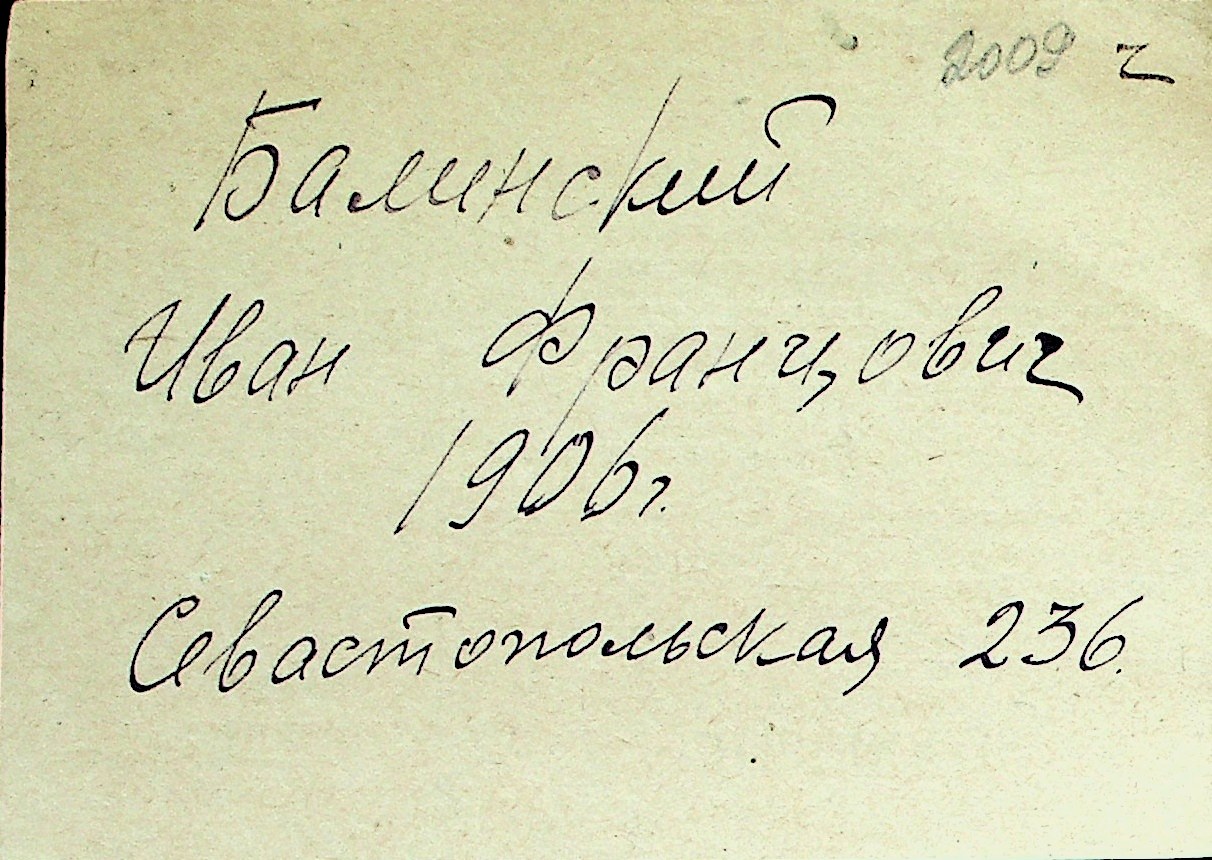 2009 ч
Балинский
Иван Францович
1906г.
Севастопольская 236.